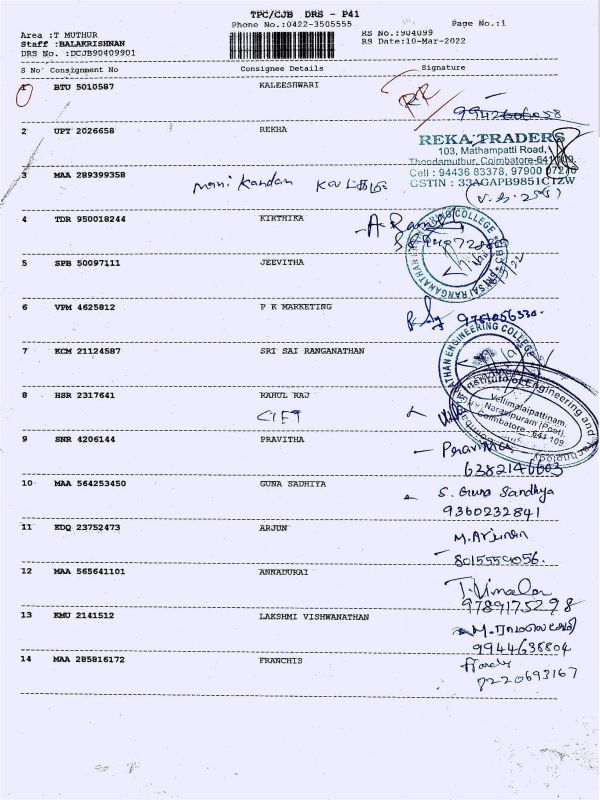 TPC/CJB DRS - P41
Phone No.:0422-3505555
Page No.:1
Area :T MUTHUR
RS No.:904099
Staff :BALAKRISHNAN
RS Date:10-Mar-2022
DRS No. :DCJB90409901
S No Consignment No Consignee Details Signature
1 BTU 5010587 KALEESHWARI
RR
2 UPT 2026658 REKHA
REKA TRADERS
103, Mathampatti Road,
Thondamuthur, Coimbatore-641109.
Cell : 94436 83378, 97900 07270
GSTIN : 33AGAPB9851C1ZW
3 MAA 289399358
Mani Kandan
4 TDR 950018244 KIRTHIKA
5 SPB 50097111 JEEVITHA
6 VPM 4625812 P K MARKETING
7 KCM 21124587 SRI SAI RANGANATHAN
8 HSR 2317641 RAHUL RAJ
CIET
Institute of Engineering and
Vellimalaipattinam,
Narasipuram (Post),
Coimbatore - 641 109
9 SNR 4206144 PRAVITHA
6382146603
10 MAA 564253450 GUNA SADHIYA
S. Guna Sandhya
9360232841
11 KDQ 23752473 ARJUN
M. Arjunan
8015559056.
12 MAA 565641101 ANNADURAI
T. Vimala
9789175298
13 KMU 2141512 LAKSHMI VISHWANATHAN
9944638804
14 MAA 285816172 FRANCHIS
7220693167